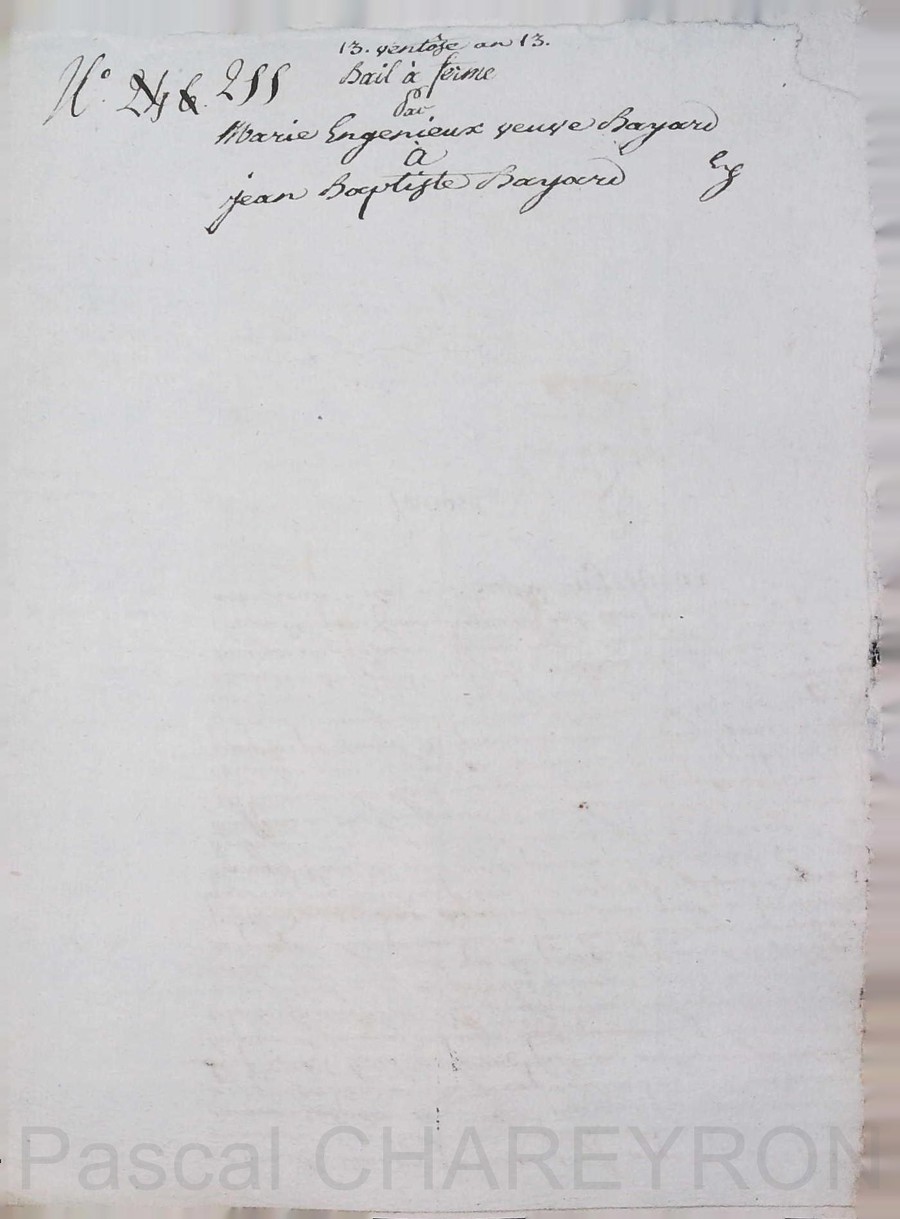 13. ventôse an 13.
N.° 246 255 Bail à ferme
par
Marie Engenieux veuve Bayard
à
jean Baptiste Bayard Eg
Pascal CHAREYRON